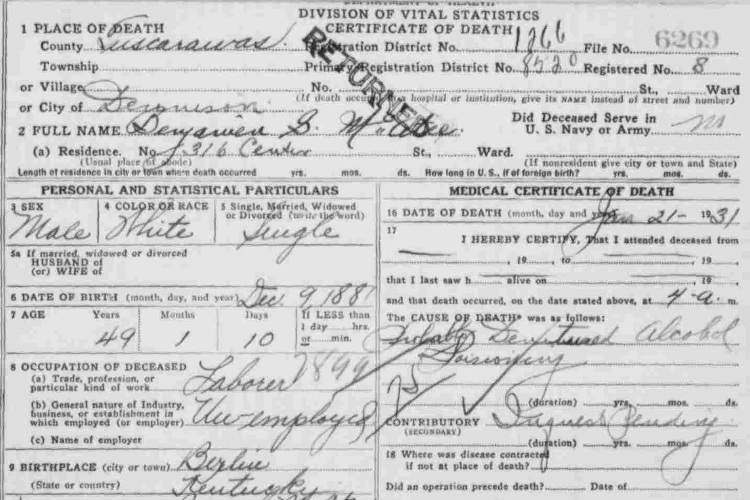 DIVISION OF VITAL STATISTICS
CERTIFICATE OF DEATH
1 PLACE OF DEATH
County Tuscarawas Registration District No. 1266 File No. 6269
Township Primary Registration District No. 8520 Registered No. 8
or Village No. St., Ward
(If death occurred in a hospital or institution, give its NAME instead of street and number)
or City of Dennison
RETURNED
Did Deceased Serve in
U. S. Navy or Army no
2 FULL NAME S.
(a) Residence. No. 316 Center St., Ward.
(Usual place of abode) (If nonresident give city or town and State)
Length of residence in city or town where death occurred yrs. mos. ds. How long in U. S., if of foreign birth? yrs. mos. ds.
PERSONAL AND STATISTICAL PARTICULARS
3 SEX 4 COLOR OR RACE 5 Single, Married, Widowed
or Divorced (write the word)
Male White Single
5a If married, widowed or divorced
HUSBAND of
(or) WIFE of
6 DATE OF BIRTH (month, day, and year) Dec 9, 188
7 AGE Years Months Days If LESS than
1 day hrs.
or min.
49 1 10
8 OCCUPATION OF DECEASED
(a) Trade, profession, or
particular kind of work Laborer 7899
(b) General nature of Industry,
business, or establishment in
which employed (or employer) Un-employed
(c) Name of employer
9 BIRTHPLACE (city or town) Berlin
(State or country) Kentucky
MEDICAL CERTIFICATE OF DEATH
16 DATE OF DEATH (month, day and year) Jan 21- 1931
17
I HEREBY CERTIFY, That I attended deceased from
, 19 , to , 19 ,
that I last saw h alive on , 19 ,
and that death occurred, on the date stated above, at 4-a. m.
The CAUSE OF DEATH* was as follows:
Denatured Alcohol
Poisoning
(duration) yrs. mos. ds.
CONTRIBUTORY Inquest Pending
(SECONDARY)
(duration) yrs. mos. ds.
18 Where was disease contracted
if not at place of death?
Did an operation precede death? Date of